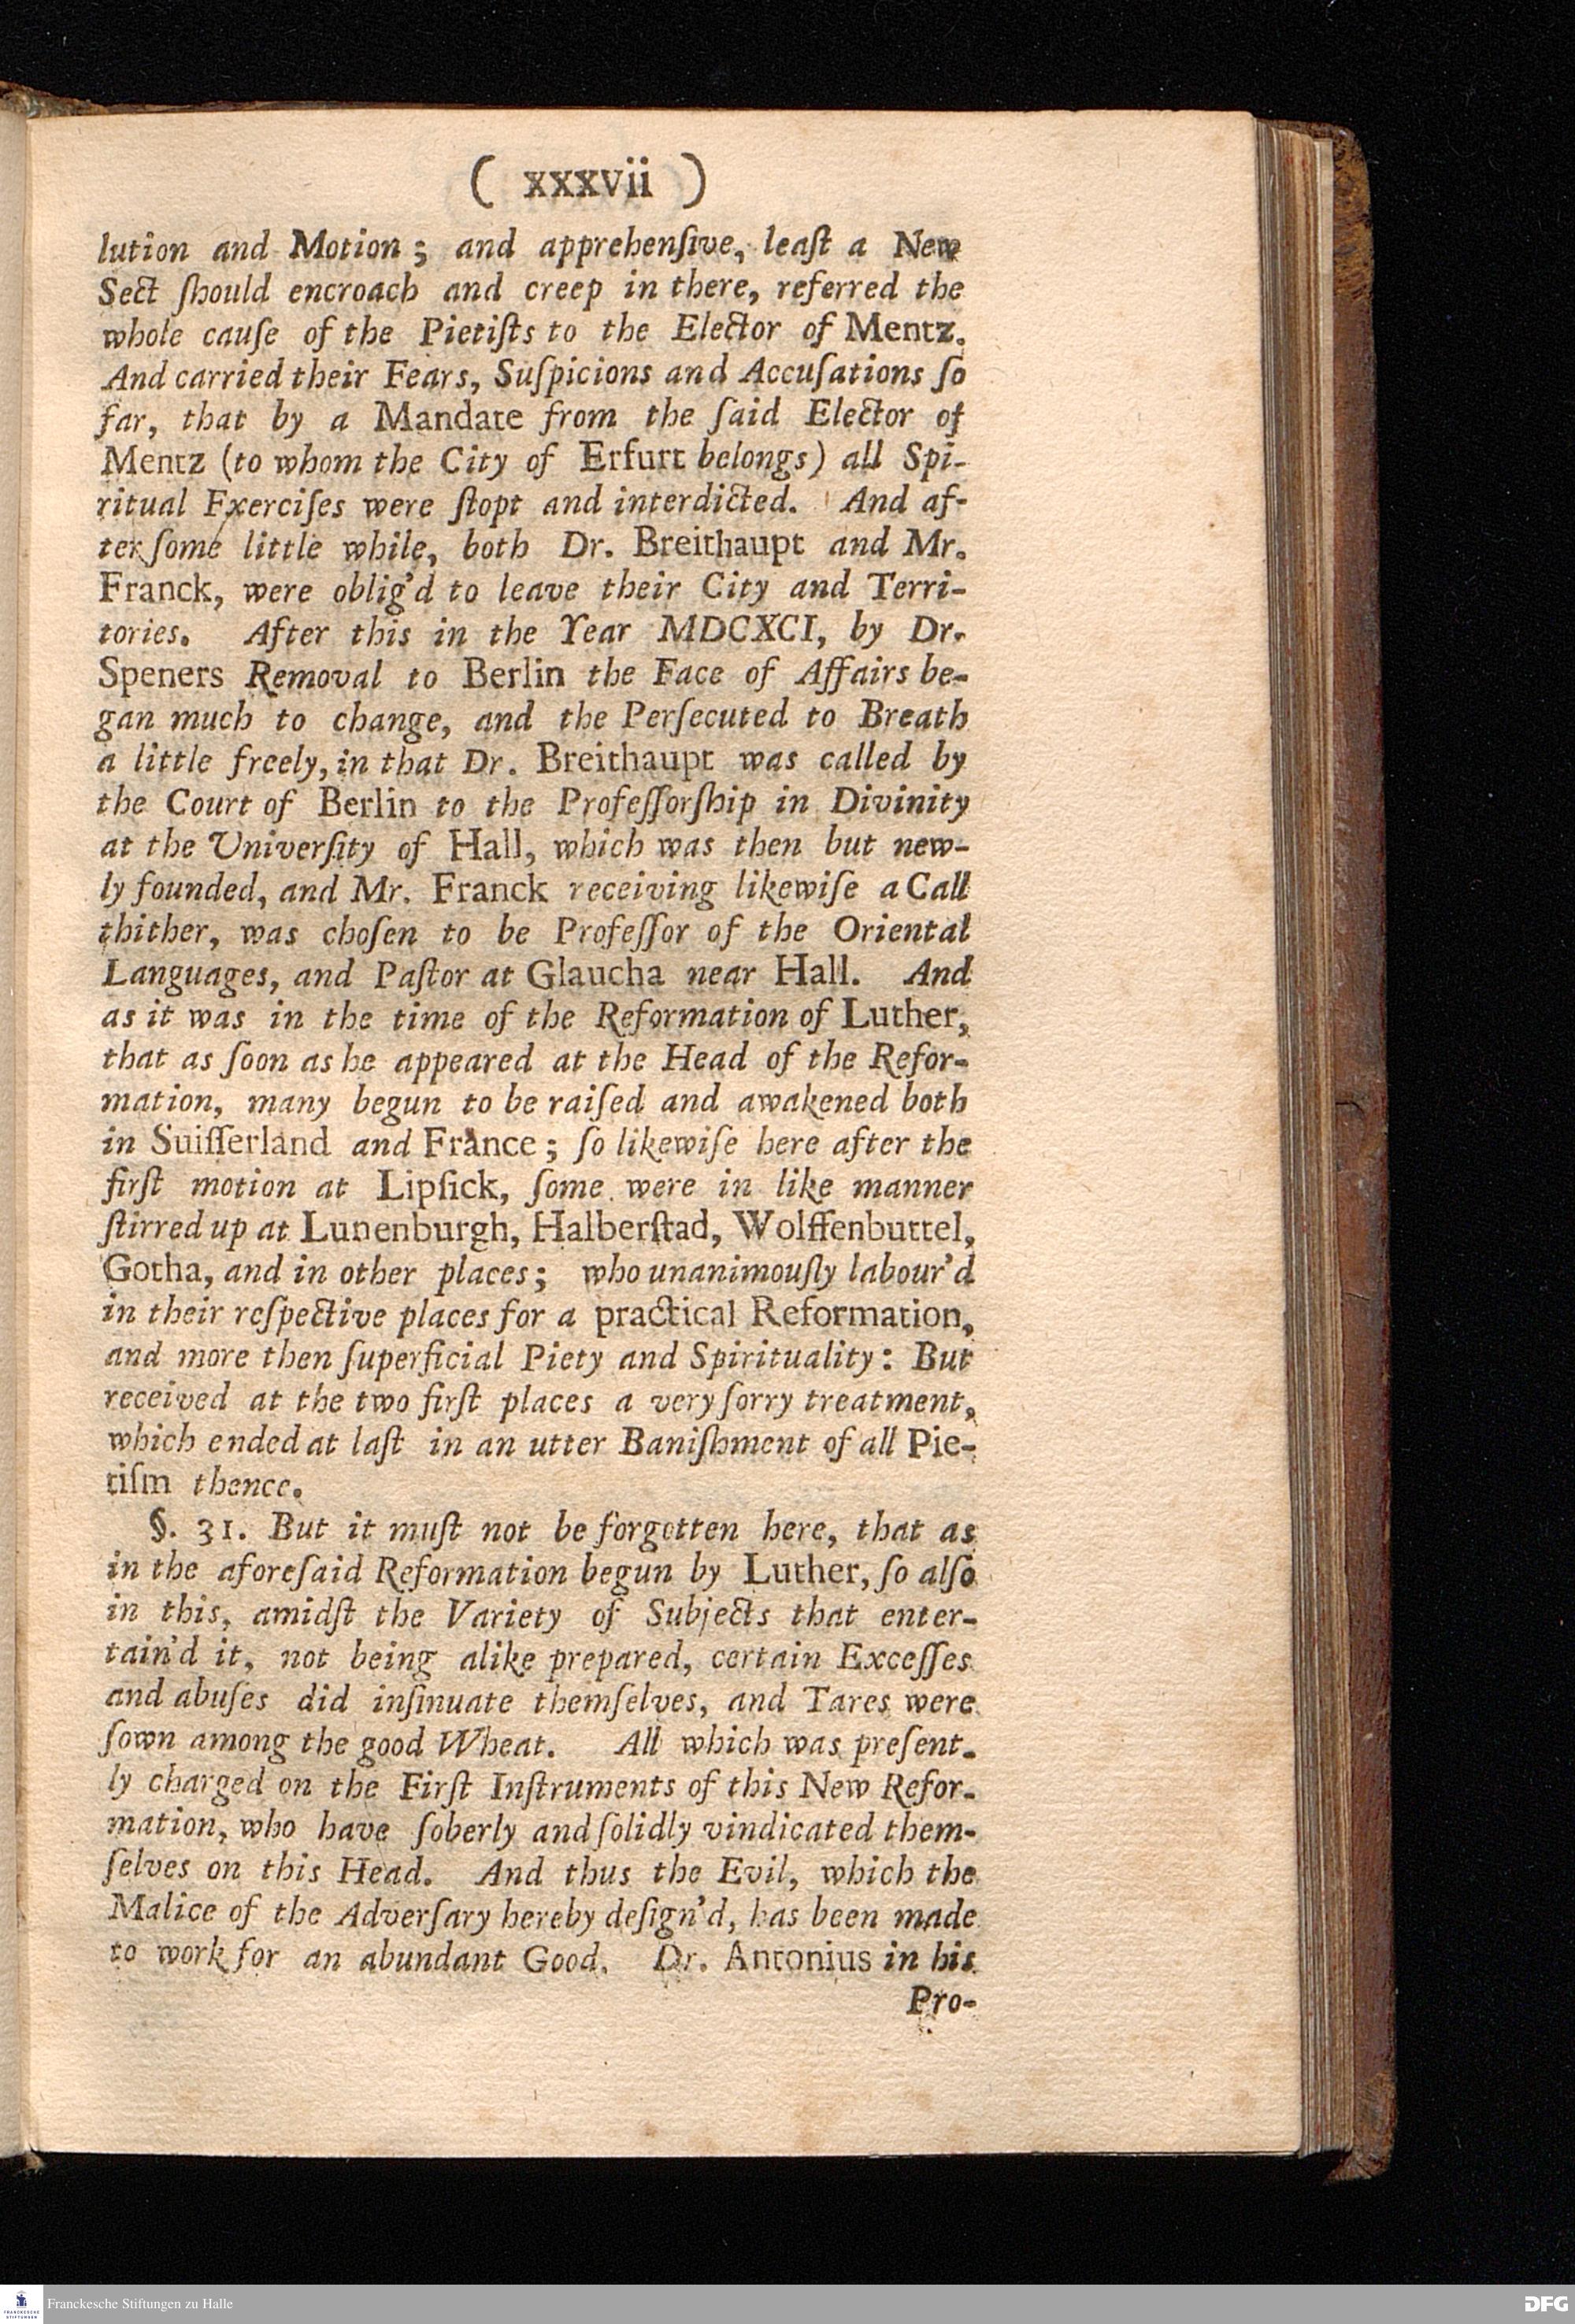 ( xxxvii )
lution and Motion; and apprehenſive, leaſt a New
Sect ſhould encroach and creep in there, referred the
whole cauſe of the Pietiſts to the Elector of Mentz.
And carried their Fears, Suſpicions and Accuſations ſo
far, that by a Mandate from the ſaid Elector of
Mentz (to whom the City of Erfurt belongs) all Spi-
ritual Exerciſes were ſtopt and interdicted. And af-
ter ſome little while, both Dr. Breithaupt and Mr.
Franck, were oblig'd to leave their City and Terri-
tories. After this in the Year MDCXCI, by Dr.
Speners Removal to Berlin the Face of Affairs be-
gan much to change, and the Perſecuted to Breath
a little freely, in that Dr. Breithaupt was called by
the Court of Berlin to the Profeſſorſhip in Divinity
at the Univerſity of Hall, which was then but new-
ly founded, and Mr. Franck receiving likewiſe a Call
thither, was choſen to be Profeſſor of the Oriental
Languages, and Paſtor at Glaucha near Hall. And
as it was in the time of the Reformation of Luther,
that as ſoon as he appeared at the Head of the Refor-
mation, many begun to be raiſed and awakened both
in Suiſſerland and France; ſo likewiſe here after the
firſt motion at Lipſick, ſome were in like manner
ſtirred up at Lunenburgh, Halberſtad, Wolffenbuttel,
Gotha, and in other places; who unanimouſly labour'd
in their reſpective places for a practical Reformation,
and more then ſuperficial Piety and Spirituality: But
received at the two firſt places a very ſorry treatment,
which ended at laſt in an utter Baniſhment of all Pie-
tiſm thence.
§. 31. But it muſt not be forgotten here, that as
in the aforeſaid Reformation begun by Luther, ſo alſo
in this, amidſt the Variety of Subjects that enter-
tain'd it, not being alike prepared, certain Exceſſes
and abuſes did inſinuate themſelves, and Tares were
ſown among the good Wheat. All which was preſent-
ly charged on the Firſt Inſtruments of this New Refor-
mation, who have ſoberly and ſolidly vindicated them-
ſelves on this Head. And thus the Evil, which the
Malice of the Adverſary hereby deſign'd, has been made
to work for an abundant Good. Dr. Antonius in his
Pro-
FRANCKESCHE
STIFTUNGEN
Franckesche Stiftungen zu Halle
DFG